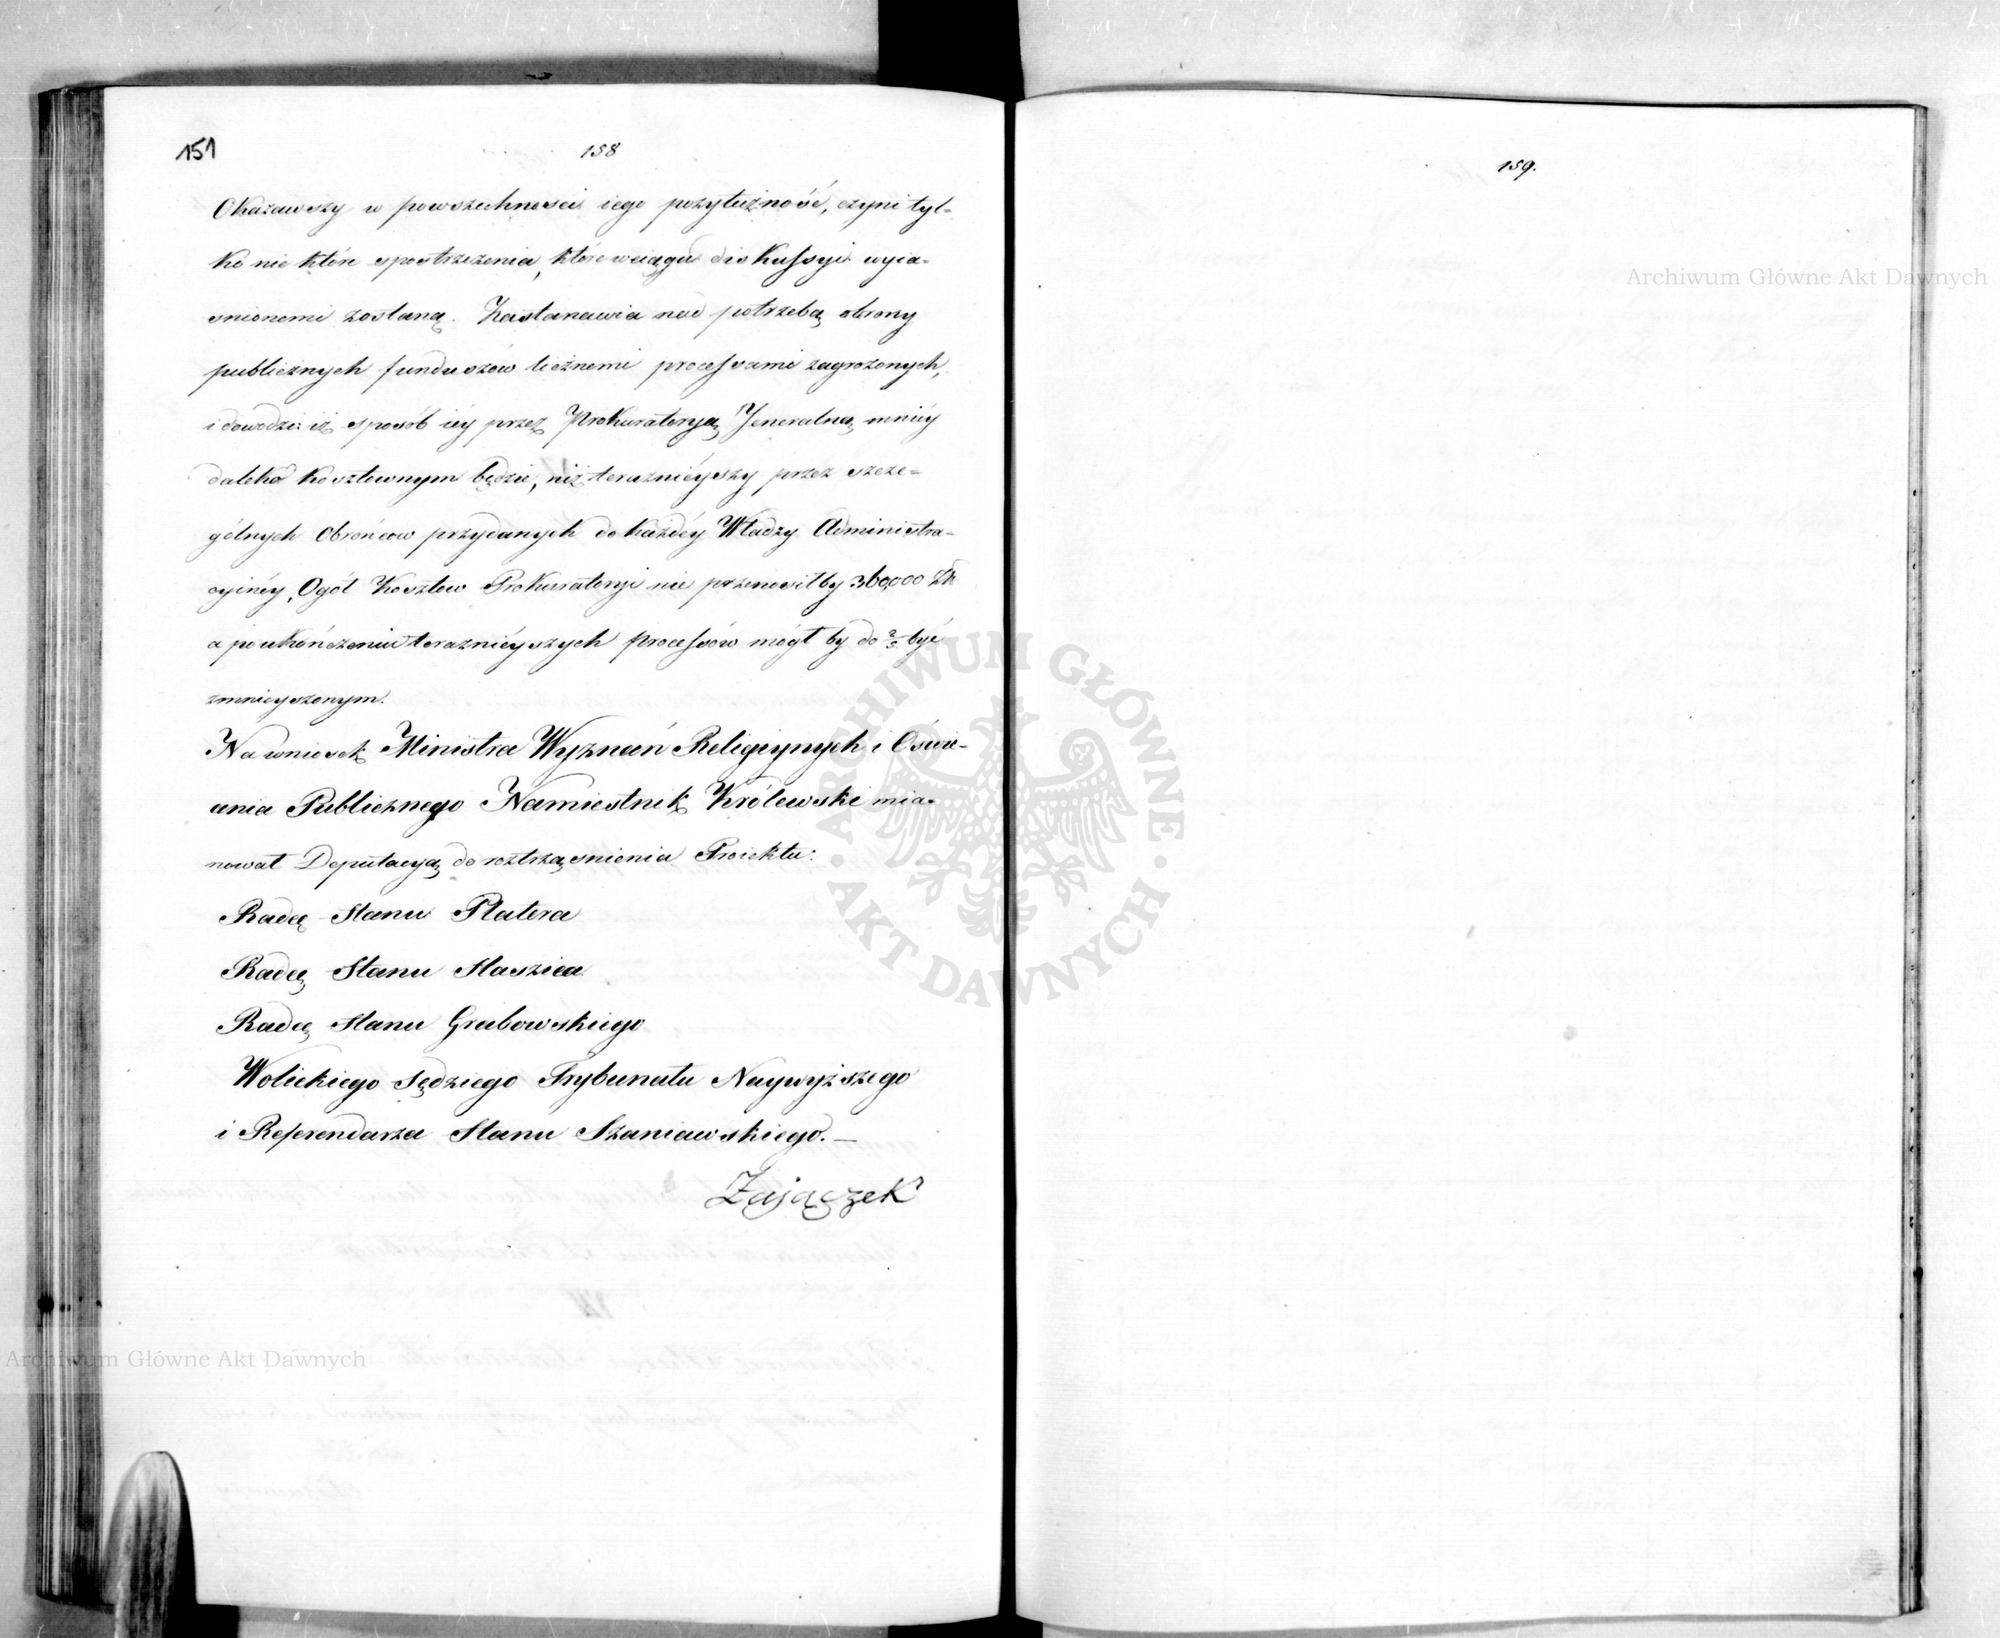 151
158
Okazawszy w powszechności iego pożytużność, czyni tyl=
ko nie które spostrzeżenia, które wciągu diskussyi wyia=
snionemi zostaną. Zastanawia nad potrzebą obrony
publicznych funduszów licznemi processami zagrożonych,
i dowodzi: iż sposób iéy przez Prokuratoryą Jeneralną mniéy
daleko kosztownym będzie, niż teraznieyszy przez szcze=
gólnych Obrońcow przydanych do każdéy Władzy Administra=
cyinéy, Ogół Kosztow Prokuratoryi nie przenosiłby 360,000 Zł
a po ukończeniu teraznieyszych processów mógł by do 2/3 być
zmnieyszonym.
Na wniosek Ministra Wyznań Religiynych i Oświe=
cenia Publicznego Namiestnik Królewski mia=
nował Deputacyą do roztrząsnienia Proiektu:
Radcę Stanu Platera
Radcę Stanu Staszica
Radcę Stanu Grabowskiego
Wolickiego Sędziego Trybunału Naywyższego
i Referendarza Stanu Szaniawskiego. —
Zajączek
159.
Archiwum Główne Akt Dawnych
ARCHIWUM GŁÓWNE
AKT DAWNYCH
Archiwum Główne Akt Dawnych